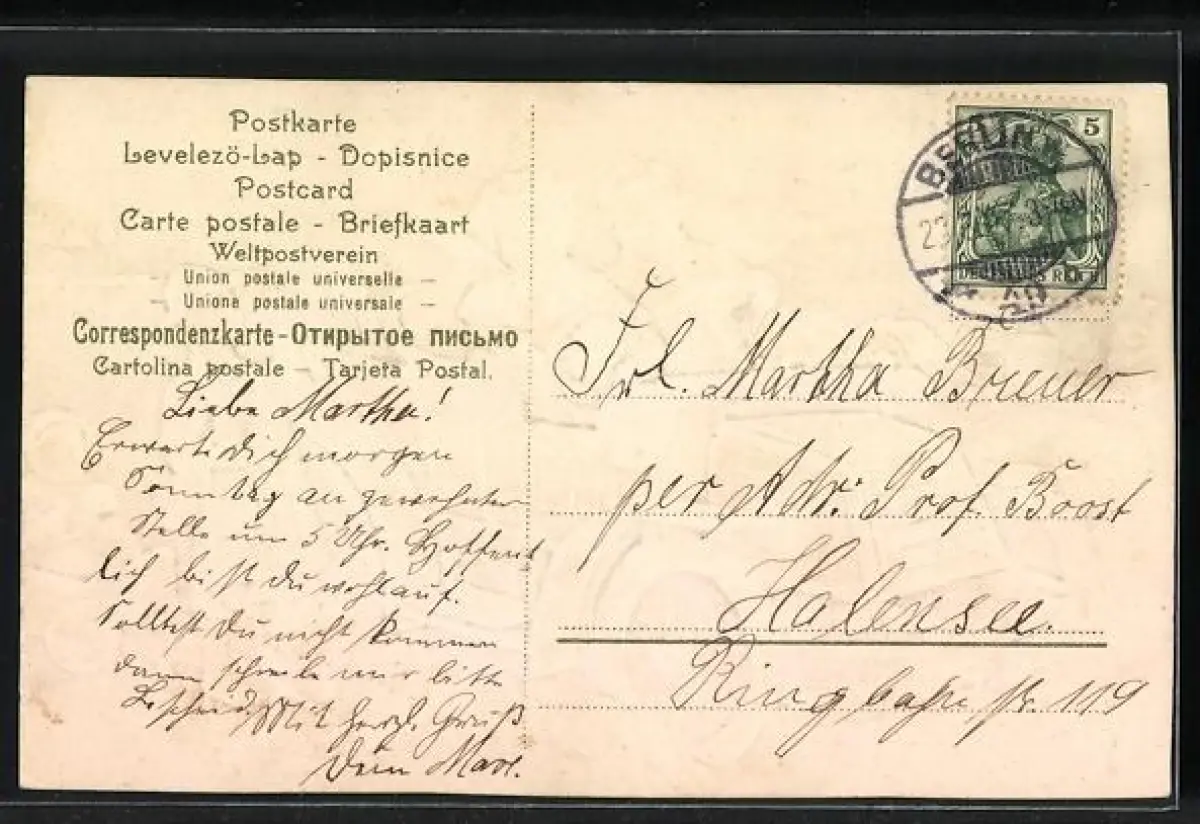 Postkarte
Levelezö-Lap - Dopisnice
Postcard
Carte postale - Briefkaart
Weltpostverein
- Union postale universelle -
- Unione postale universale -
Correspondenzkarte - Открытое письмо
Cartolina postale - Tarjeta Postal.
Liebe Martha!
Erwarte Dich morgen
Sonntag an gewohnter
Stelle um 5 Uhr. Hoffent
lich bist Du wohlauf.
Solltest Du nicht kommen
dann schreibe mir bitte
Bescheid. Mit herzl. Gruß
Dein Max.
5
BERLIN
DEUTSCHES REICH
Frl. Martha Breuer
per Adr: Prof. Boost
Halensee.
Ringbahnstr. 119